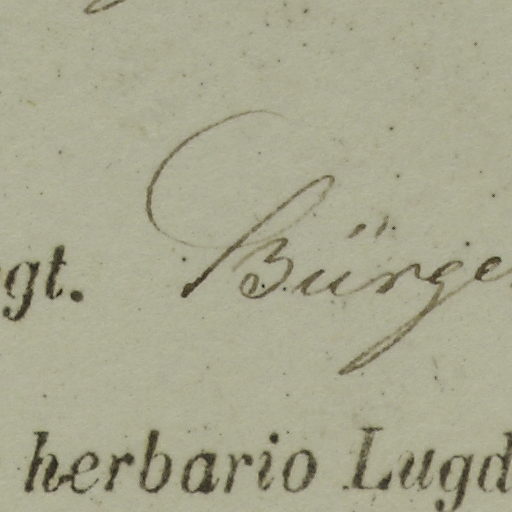 gt. Bürge
herbario Lugd